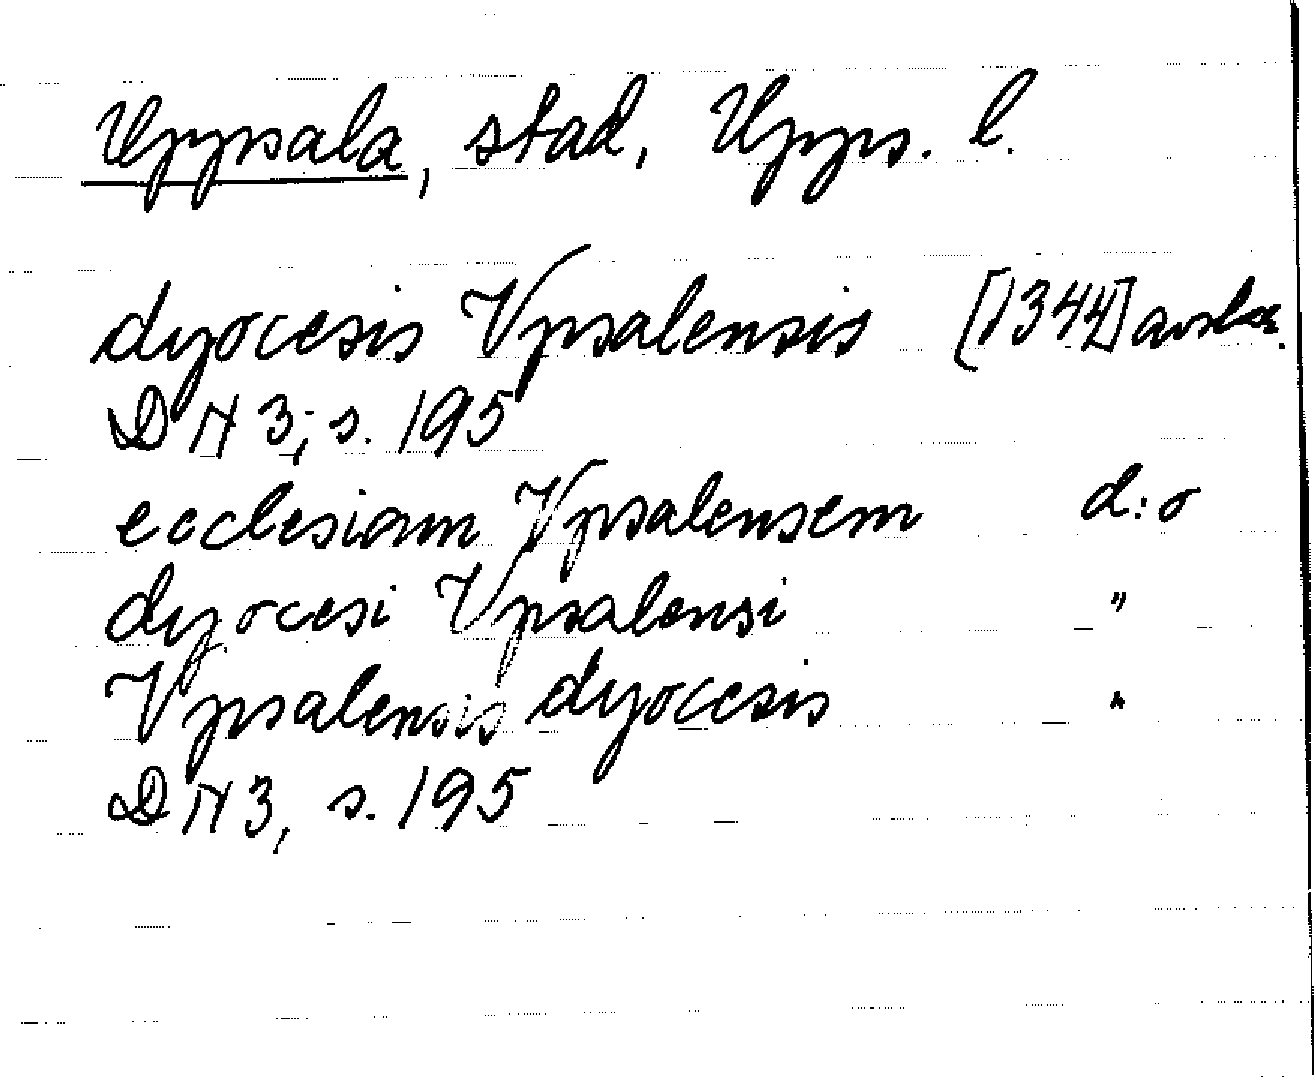 Uppsala, stad, Upps. l.
dyocesis Vpsalensis [1344] avskr.
DN 3, s. 195
ecclesiam Vpsalensem d:o
dyocesi Vpsalensi "
Vpsalensis dyocesis "
DN 3, s. 195